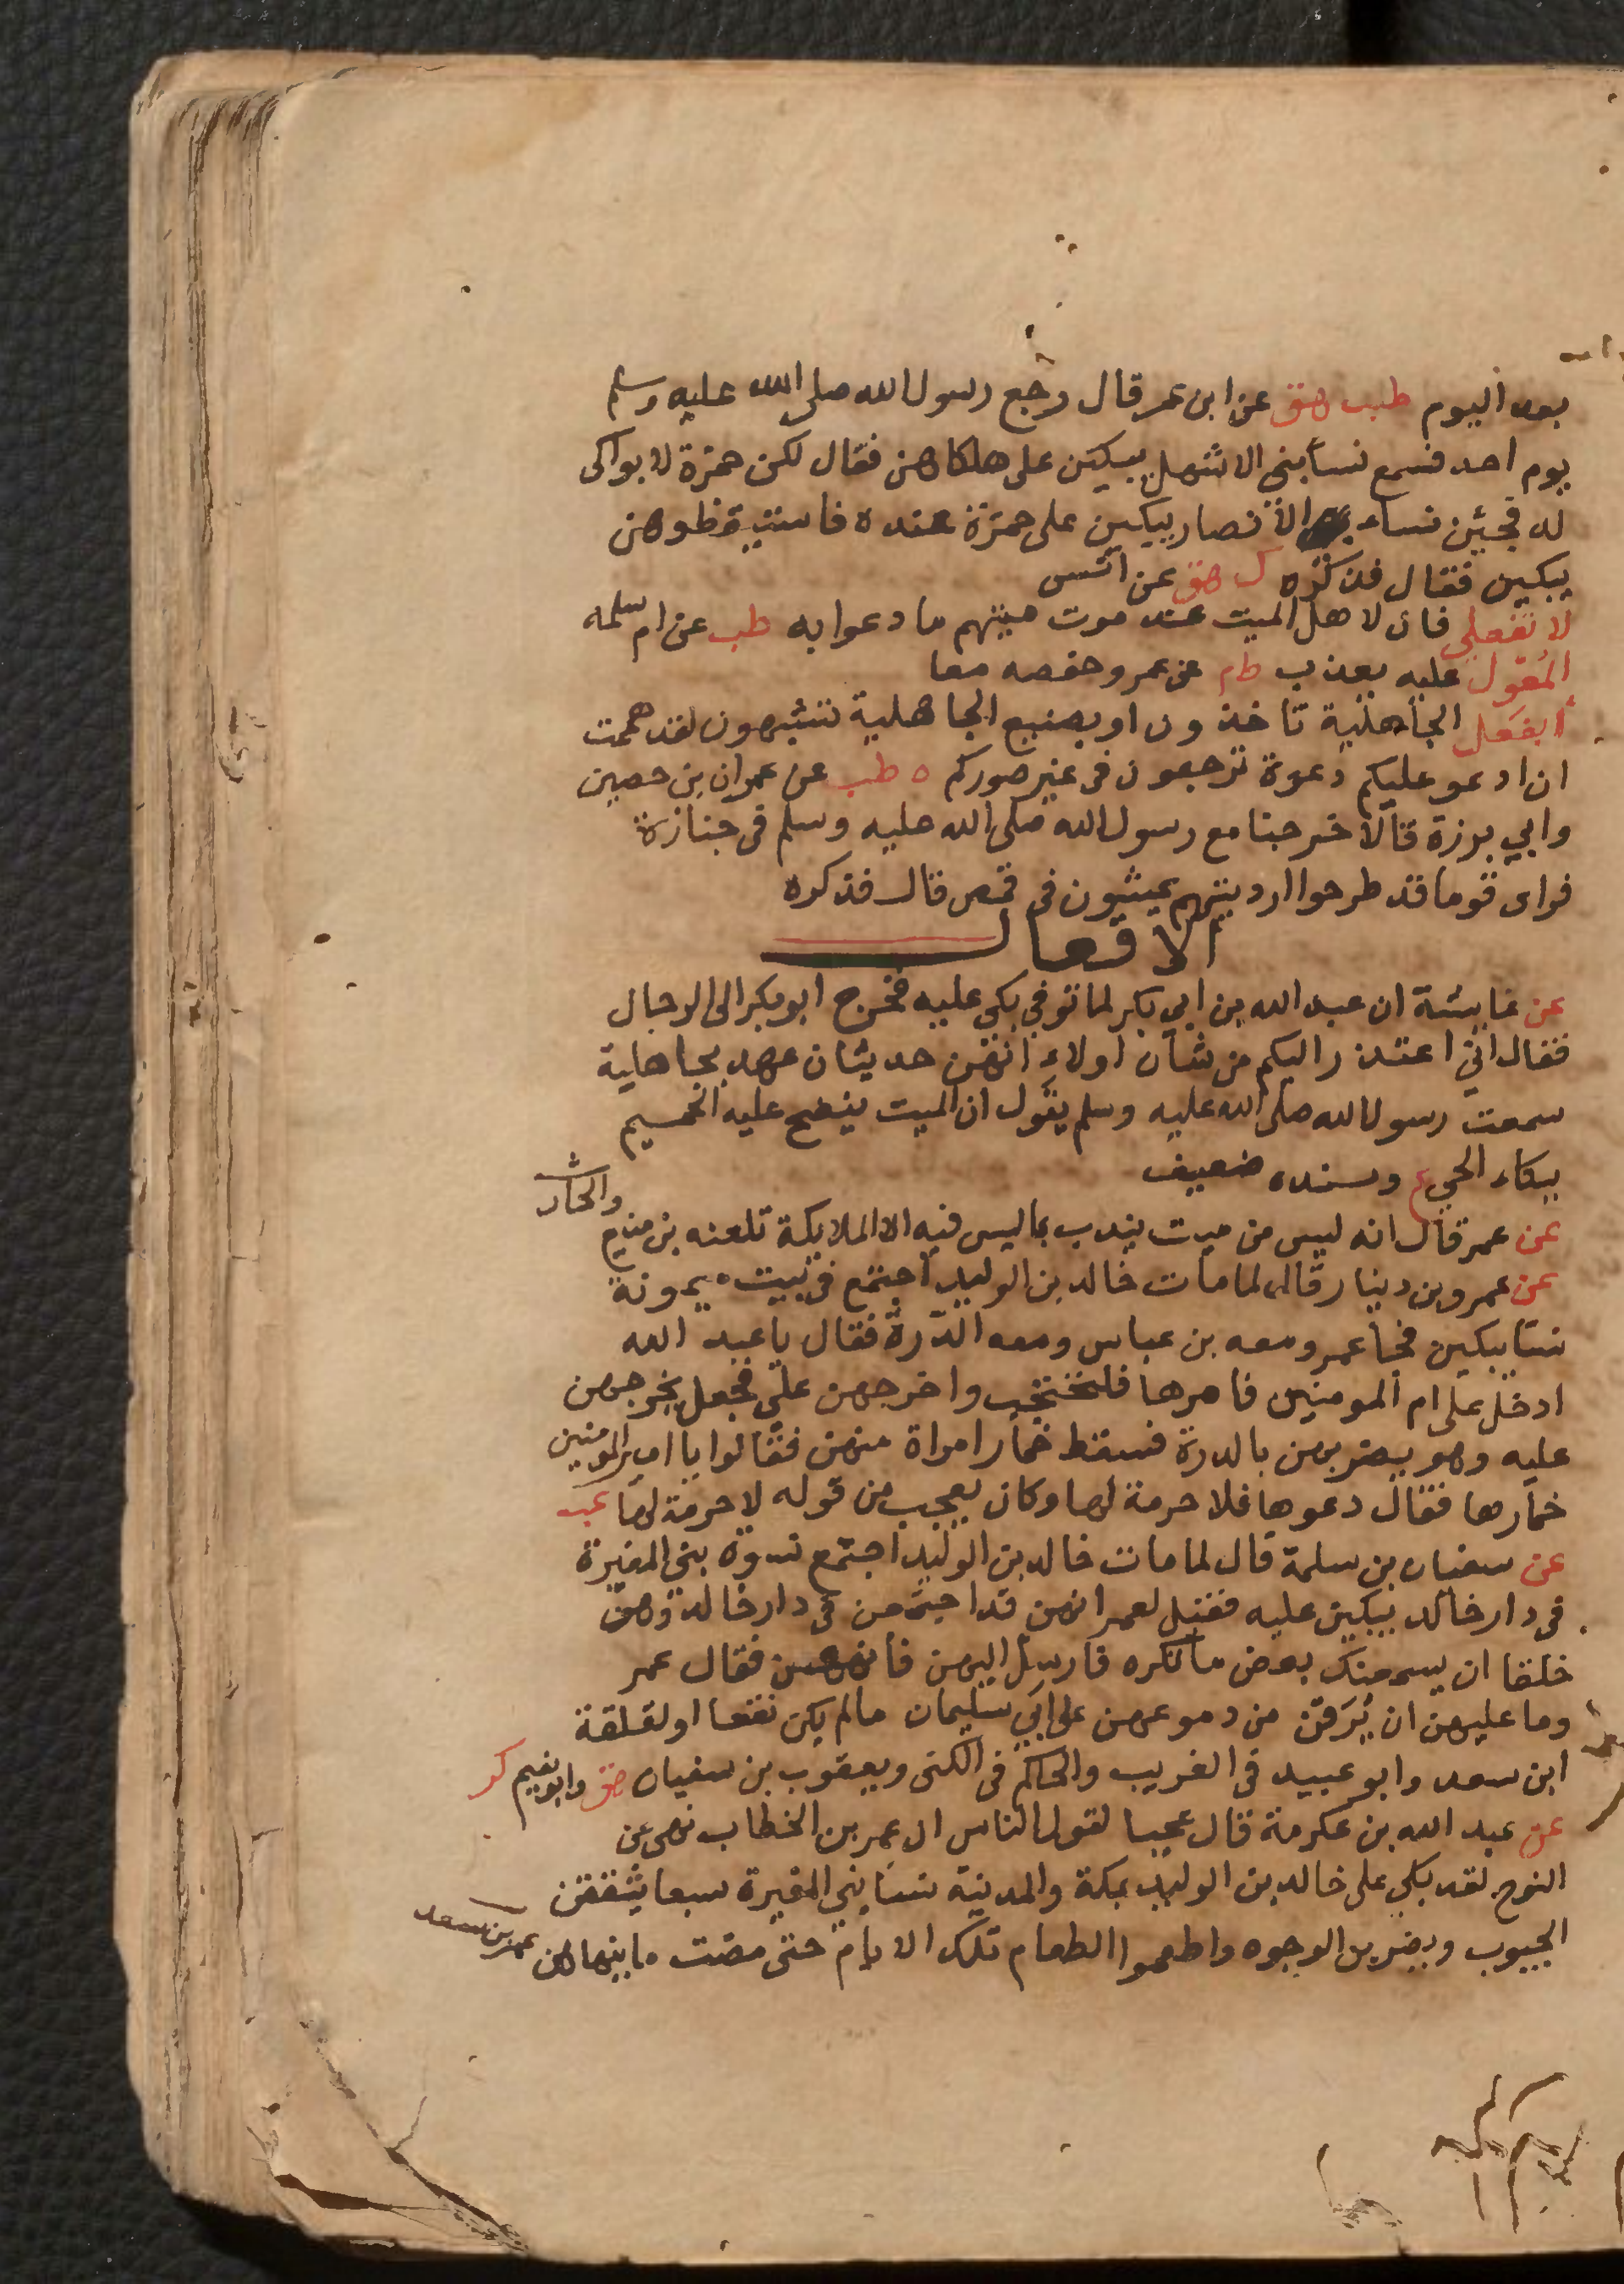 بعد اليوم طب هق عن ابن عمر قال رجع رسول الله صلى الله عليه وسلم
يوم احد فسمع نسا بني الاشهل يبكين على هلكاهن فقال لكن حمزة لا بواكى
له فجئن نساء الانصار يبكين على حمزة عنده فاستيقظ وهن
يبكين فقال فذكره ك هق عن انس
لا تفعلي فان لاهل الميت عند موت ميتهم ما دعوا به طب عن ام سلمه
المعول عليه يعذب ط م عن عمر وحفصه معا
ابفعل الجاهلية تاخذون او بصنيع الجاهلية تشبهون لقد هممت
ان ادعو عليكم دعوة ترجعون فى غير صوركم ه طب عن عمران بن حصين
وابي برزة قالا خرجنا مع رسول الله صلى الله عليه وسلم فى جنازة
فراى قوما قد طرحوا ارديتهم يمشون فى قمص قال فذكره
الافعال
عن عايشة ان عبد الله بن ابي بكر لما توفي بكي عليه فخرج ابو بكر الى الرجال
فقال اني اعتذر اليكم من شان اولاء انهن حديثان عهد بجاهلية
سمعت رسول الله صلى الله عليه وسلم يقول ان الميت ينضح عليه الحميم
ببكاء الحي ع وسنده ضعيف
عن عمر قال انه ليس من ميت يندب بما ليس فيه الا الملايكة تلعنه بن منيع والحارث
عن عمرو بن دينار قال لما مات خالد بن الوليد اجتمع في بيت ميمونة
نسا يبكين فجا عمر ومعه بن عباس ومعه الدرة فقال يا عبد الله
ادخل على ام المومنين فامرها فلتحتجب واخرجهن علي فجعل يخرجهن
عليه وهو يضربهن بالدرة فسقط خمار امراة منهن فقالوا يا امير المومنين
خمارها فقال دعوها فلا حرمة لها وكان يعجب من قوله لا حرمة لها عب
عن سفيان بن سلمة قال لما مات خالد بن الوليد اجتمع نسوة بنى المغيرة
فى دار خالد يبكين عليه فقيل لعمر انهن قد اجتمعن فى دار خالد وهن
خلقا ان يسمعنك بعض ما تكره فارسل اليهن فانههن فقال عمر
وما عليهن ان يرقن من دموعهن على ابي سليمان ما لم يكن نقعا او لقلقة
ابن سعد وابو عبيد فى الغريب والحاكم فى الكنى ويعقوب بن سفيان هق وابو نعيم كر
عن عبد الله بن عكرمة قال عجبا لقول الناس ان عمر بن الخطاب نهى عن
النوح لقد بكي على خالد بن الوليد بمكة والمدينة نسا بني المغيرة سبعا يشققن
الجيوب ويضربن الوجوه واطعموا الطعام تلك الايام حتى مضت ما ينهاهن عمر بن سعد